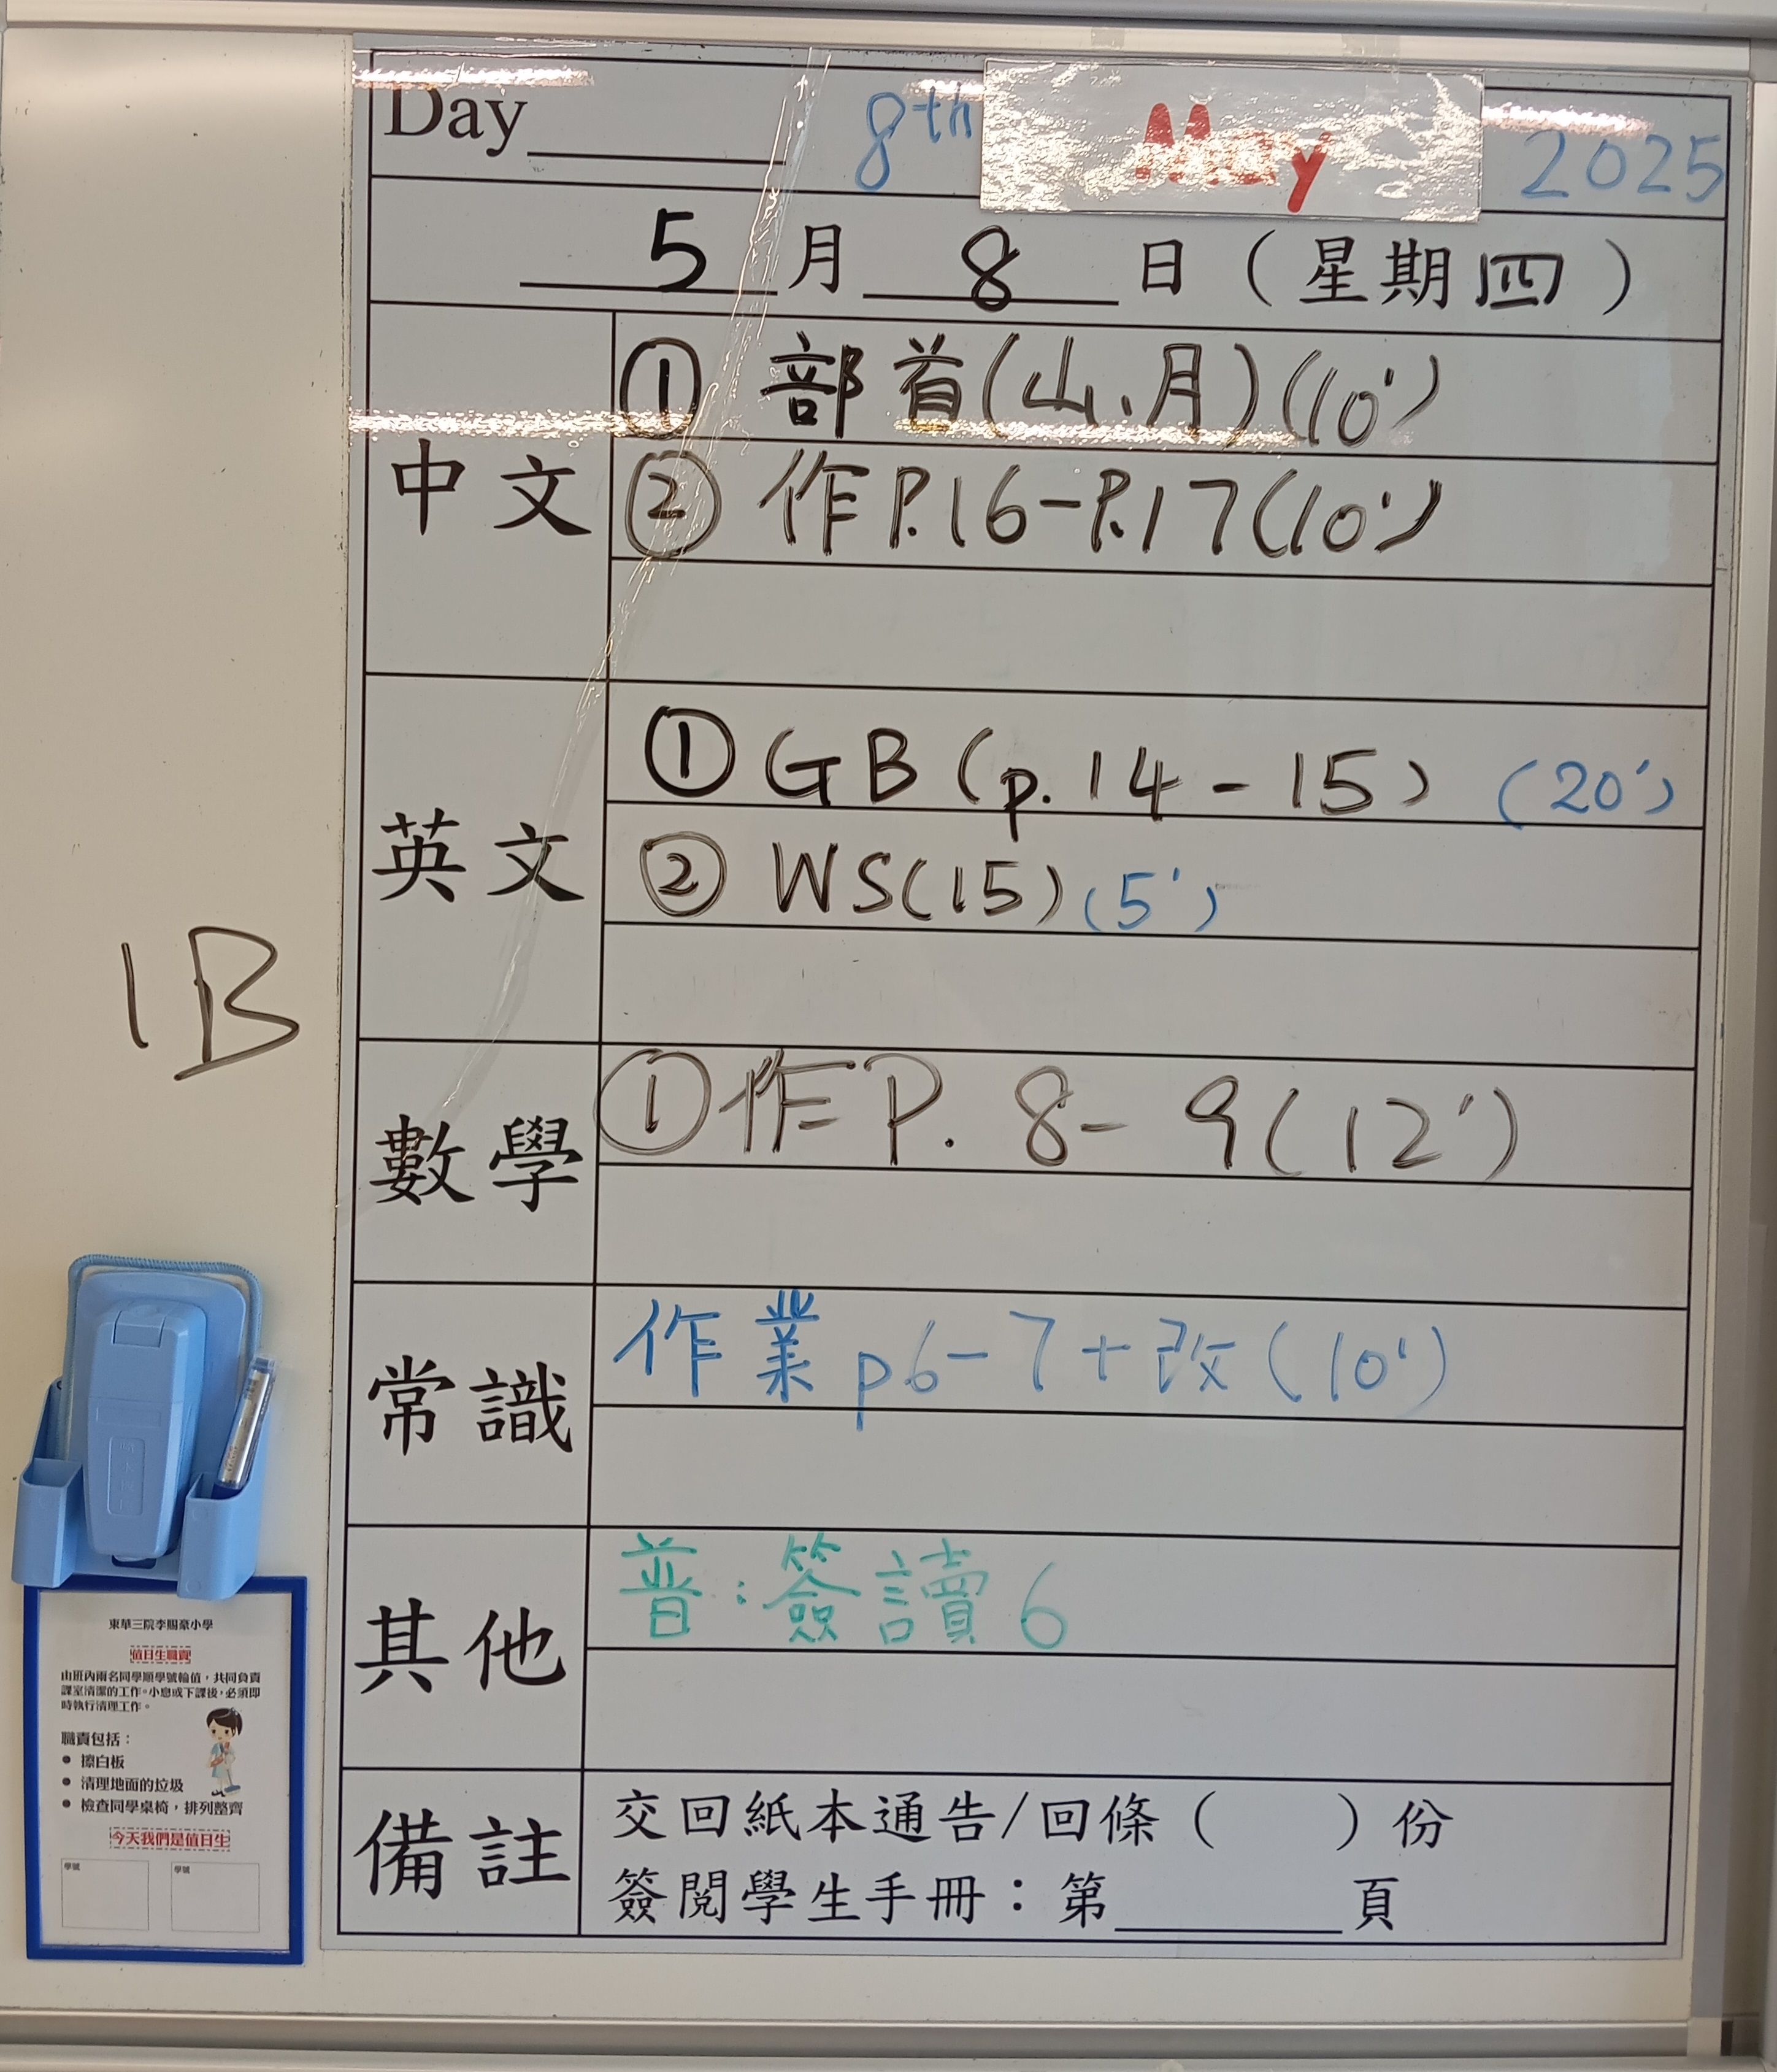 Day 8th May 2025
5月8日（星期四）
中文
① 部首(山、月)(10')
② 作P.16-P.17(10')
英文
① GB (p.14-15) (20')
② WS(15) (5')
數學
① 作P. 8-9(12')
常識
作業 p6-7+改(10')
其他
普:簽讀6
備註
交回紙本通告/回條（ ）份
簽閱學生手冊：第 頁
1B
東華三院李賜豪小學
值日生職責
由班內兩名同學順學號輪值，共同負責
課室清潔的工作。小息或下課後，必須即
時執行清理工作。
職責包括：
● 擦白板
● 清理地面的垃圾
● 檢查同學桌椅，排列整齊
今天我們是值日生
學號 學號